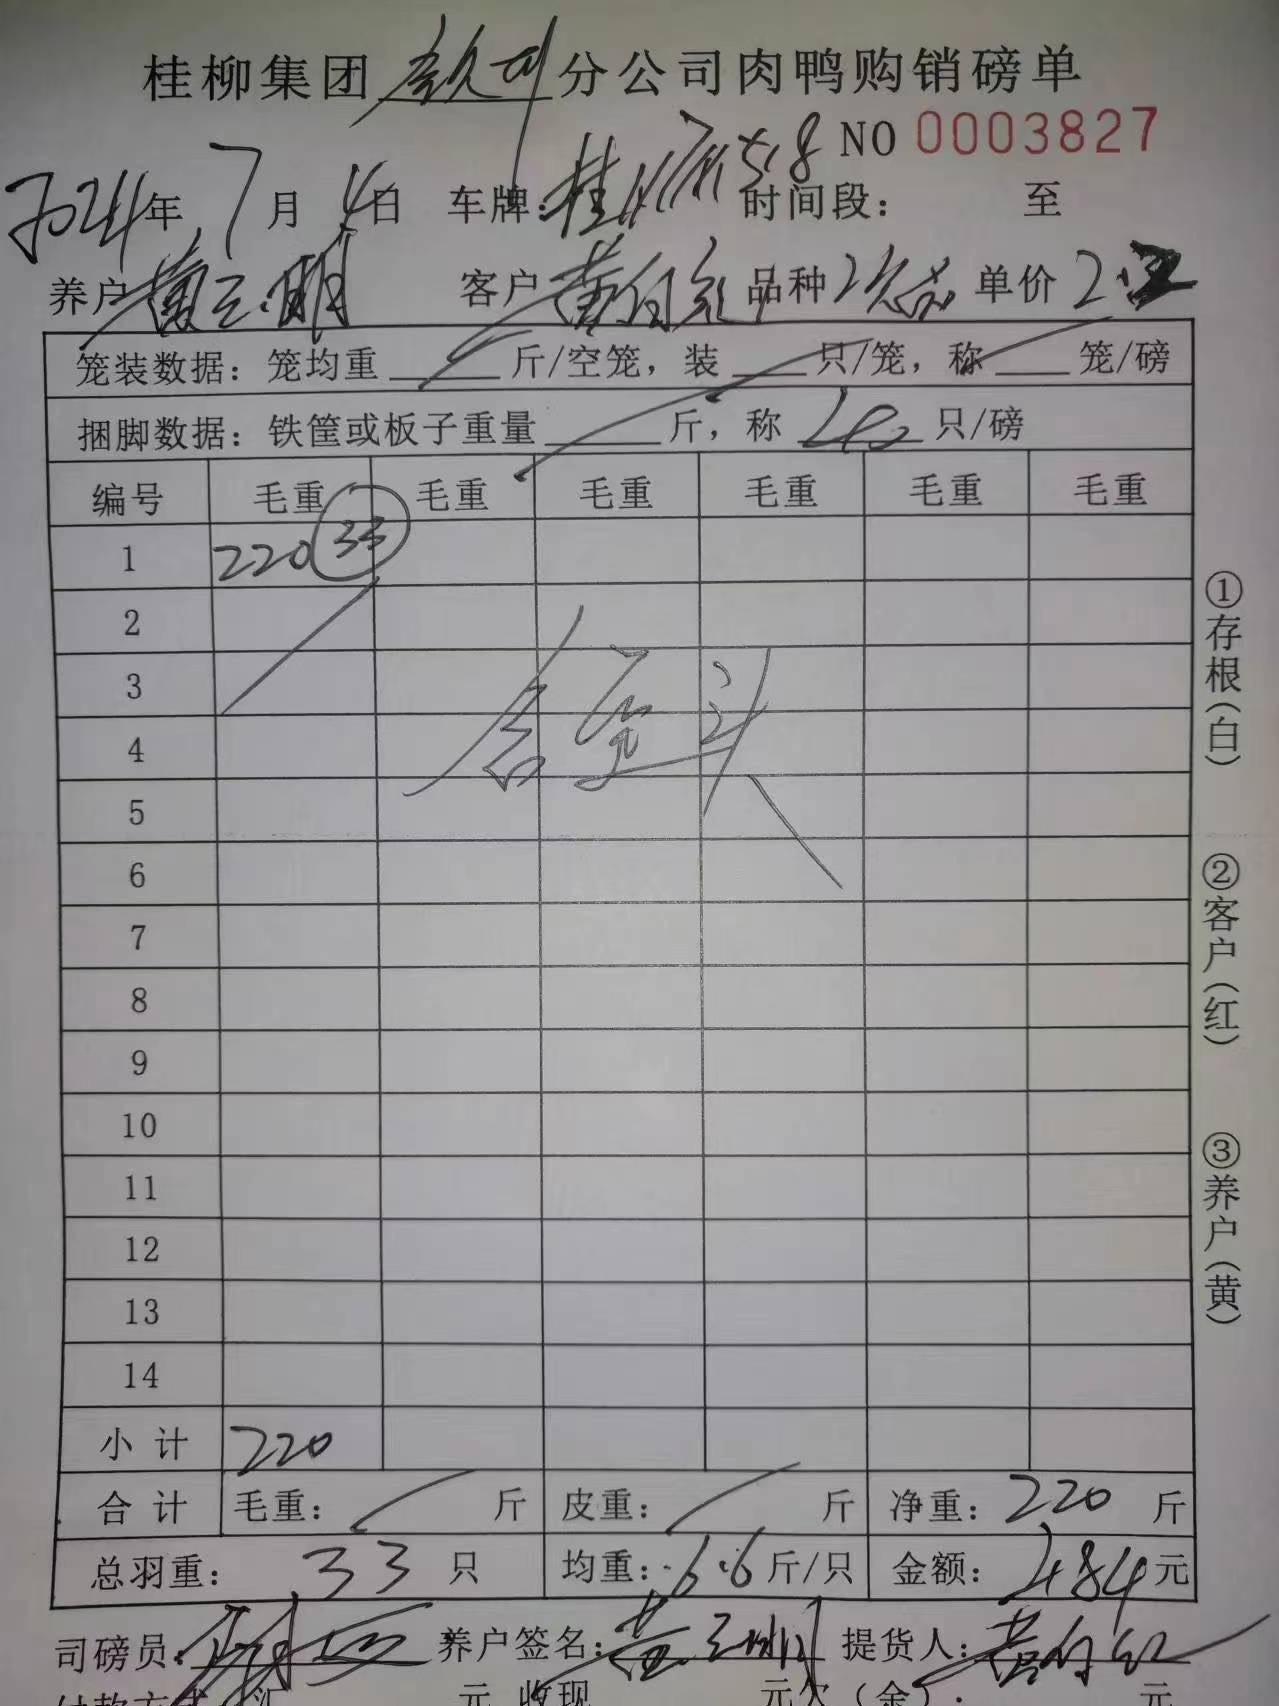 桂柳集团 分公司肉鸭购销磅单
NO 0003827
2024年 7月 4日 车牌: 桂 518 时间段: 至
养户 黄 明 客户 黄 品种 单价 2.
笼装数据: 笼均重 斤/空笼, 装 只/笼, 称 笼/磅
捆脚数据: 铁筐或板子重量 斤, 称 只/磅
编号 毛重 毛重 毛重 毛重 毛重 毛重
1 220 33
2
3
4
5
6
7
8
9
10
11
12
13
14
小计 220
合计 毛重: 斤 皮重: 斤 净重: 220 斤
总羽重: 33 只 均重: 6.6 斤/只 金额: 484 元
司磅员: 养户签名: 黄 明 提货人: 黄
付款方式 汇 元 收现 元欠(余): 元
①存根(白)
②客户(红)
③养户(黄)